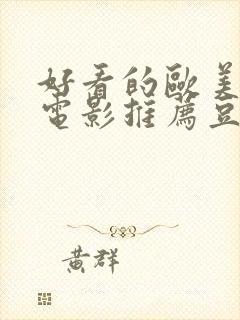 好看的欧美
電影推薦豆
黄群